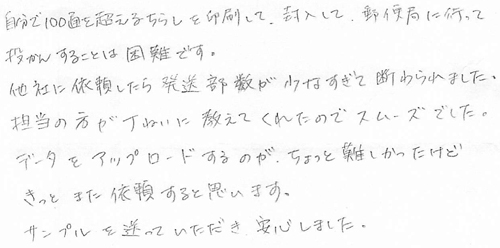 自分で100通を超えるちらしを印刷して、封入して、郵便局に行って
投かんすることは困難です。
他社に依頼したら発送部数が少なすぎて断わられました。
担当の方が丁ねいに教えてくれたのでスムーズでした。
データをアップロードするのが、ちょっと難しかったけど
きっとまた依頼すると思います。
サンプルを送っていただき安心しました。